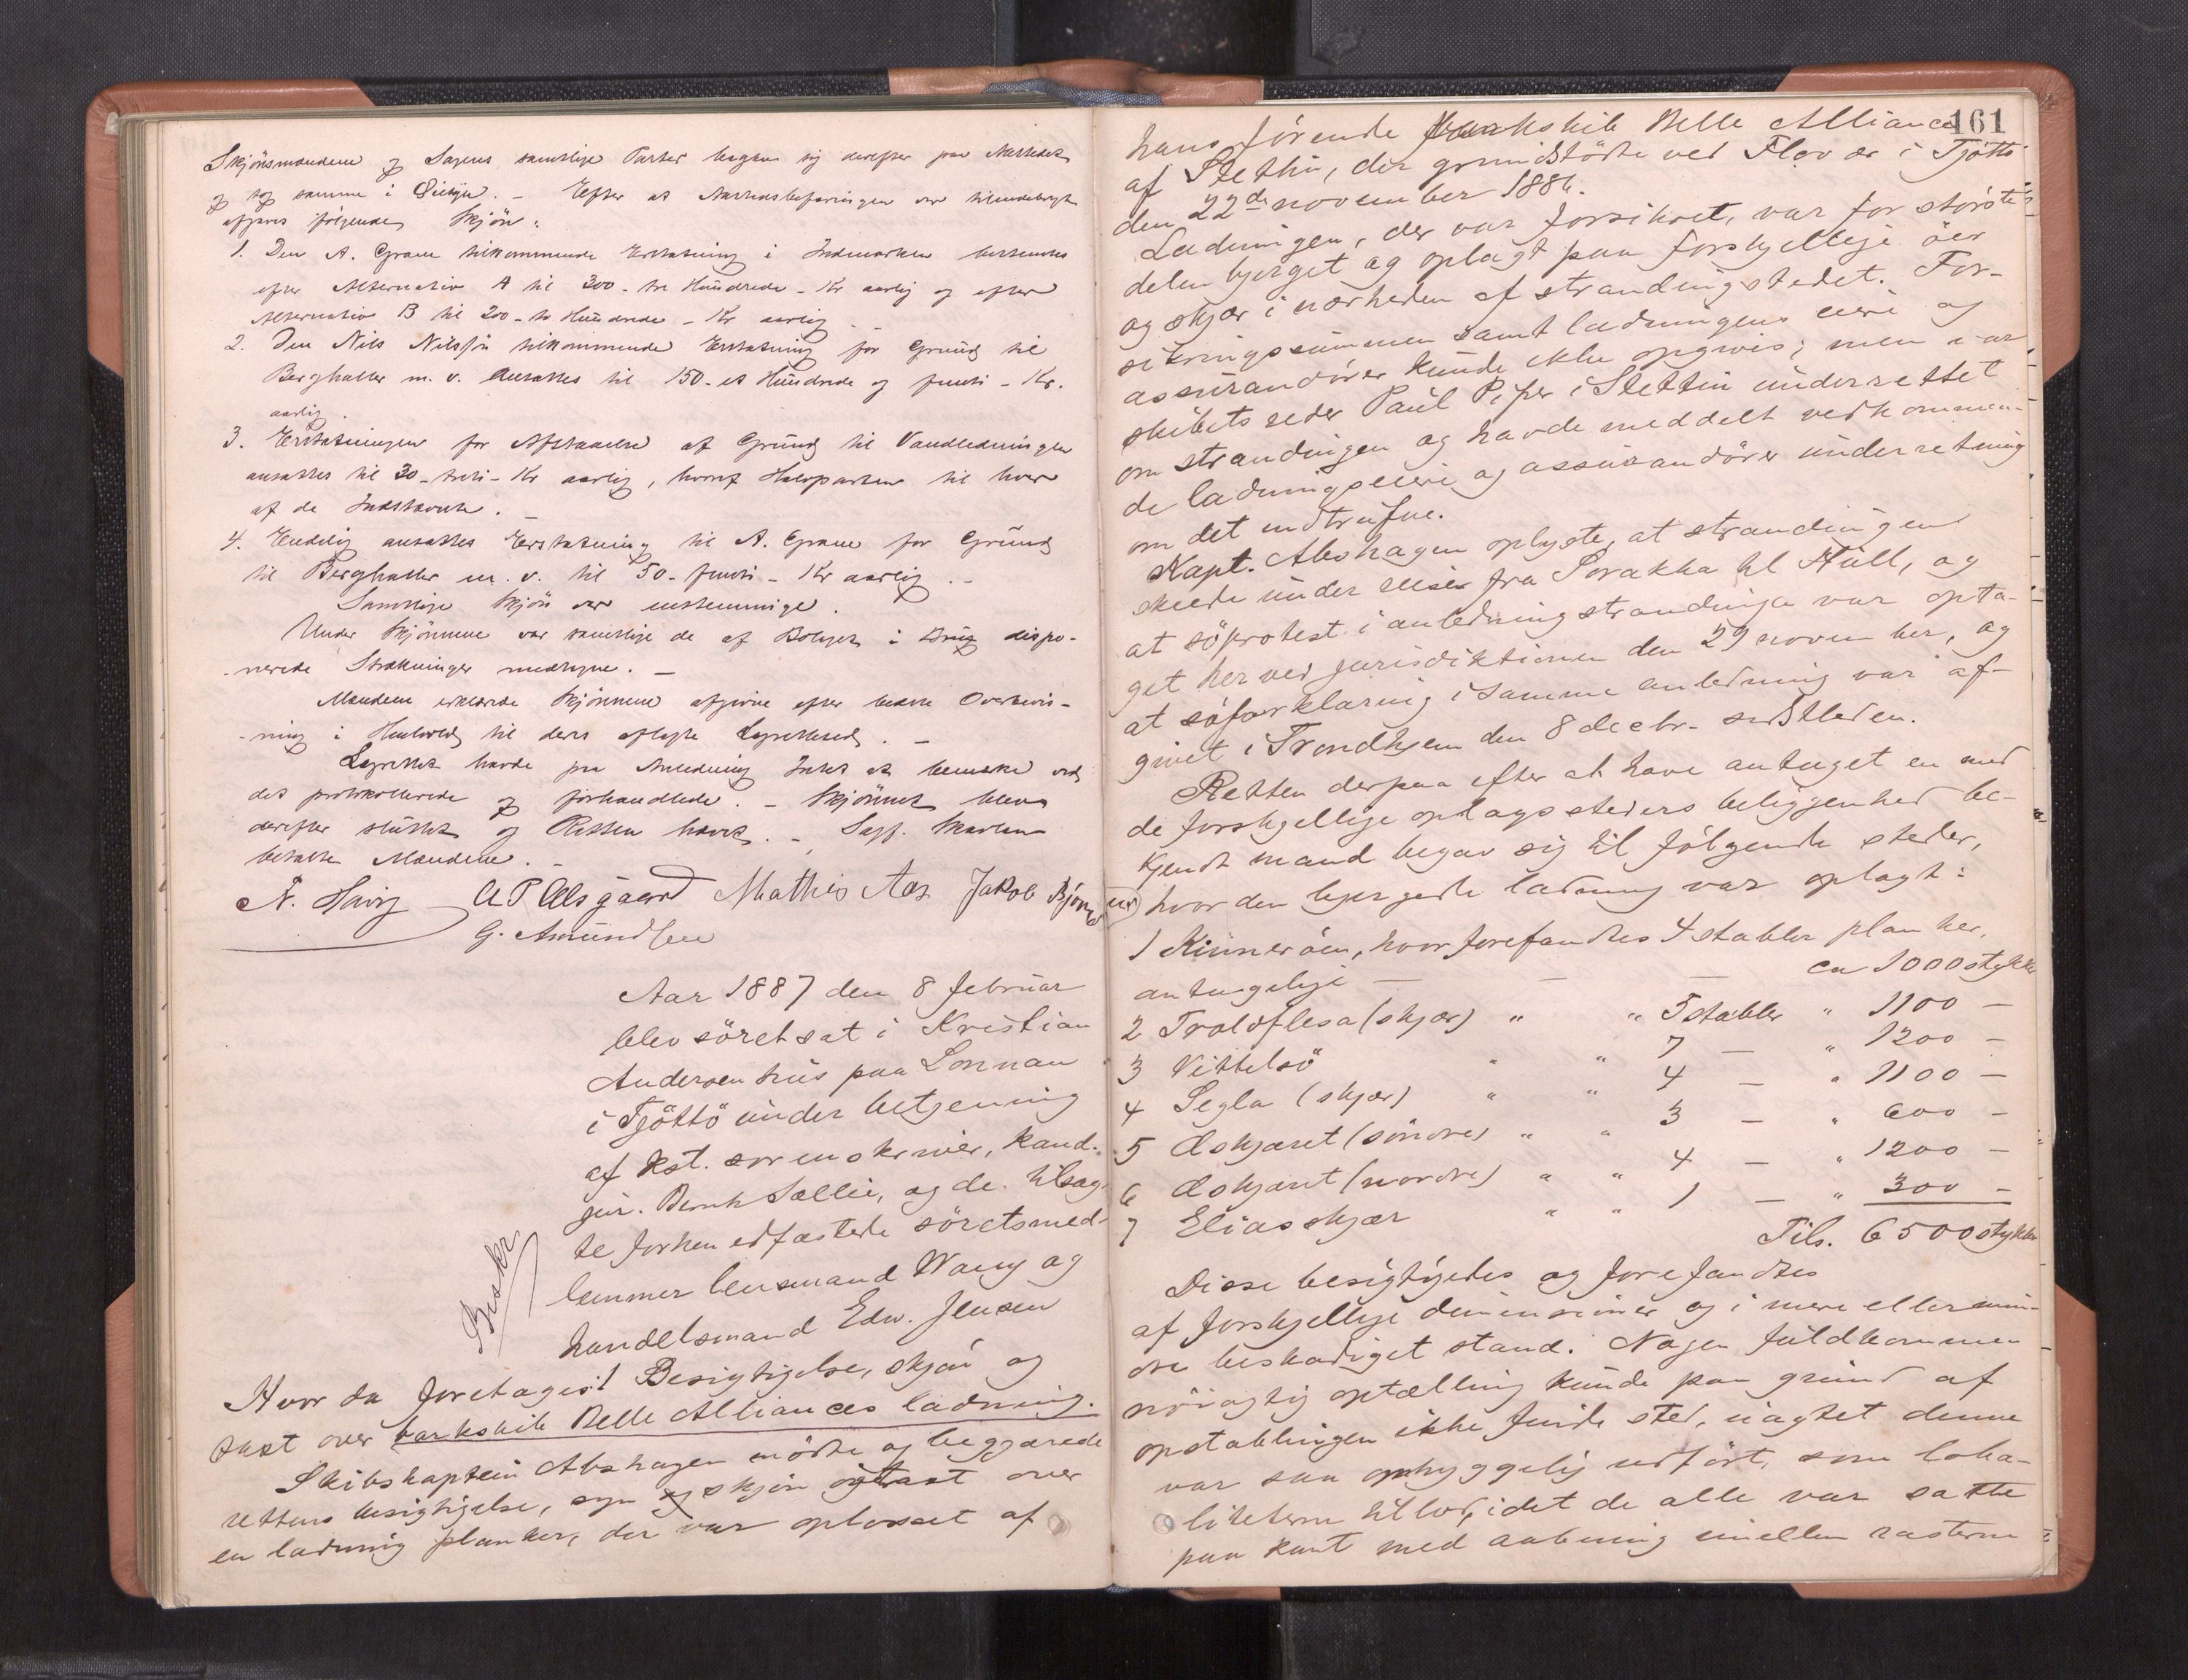 Skjönsmændene og Sagens samtlige Parter begav sig derefter paa Aastedet
og tog samme i Öiesyn. - Efter at Aastedsbefaringen var tilendebragt
afgaves følgende Skjön:
1. Den A. Grane tilkommende Erstatning i Indmarken bestemtes
efter Alternativ A til 300 - tre Hundrede - Kr aarlig og efter
Alternativ B til 200 - to Hundrede - Kr aarlig
2. Den Nils Nilssön tilkommende Erstatning for Grund til
Berghaller m. v. ansattes til 150 - et Hundrede og femti - Kr.
aarlig.
3. Erstatningen for Afstaaelse af Grund til Vandledningen
ansattes til 30 - treti - Kr aarlig, hvoraf Halvparten til hver
af de Indstevnte. -
4. Endelig ansattes Erstatning til A. Grane for Grund
til Berghaller m. v. til 50 - femti - Kr aarlig. -
Samtlige Skjön var enstemmige.
Under Skjönnene var samtlige de af Bolaget i Brug dispo-
-nerede Strækninger medtagne. -
Mændene erklærede Skjönnene afgivne efter bedste Overbevis-
-ning i Henhold til deres aflagte Lagrettesed. -
Lagrettet havde paa Anledning Intet at bemærke ved
det protokollerede og forhandlede. - Skjönnet blev
derefter sluttet og Retten hævet. - Sagf.
betalte Mændene. -
A P Alsgaard Mathis Aas Jakob
G. Amundsen
Aar 1887 den 8 februar
blev söret sat i Kristian
Andersen hus paa Lonnan
i Tjöttö under betjening
af kst. sorenskriver, kand.
jur. Bernh Sollie, og de tilsag-
te forhen edfæstede söretsmed-
lemmer lensmand Wang og
handelsmand Edw. Jensen
Beskr.
Hvor da foretages: Besigtigelse, skjön og
taxt over barkskib Belle Alliances ladning.
Skibskaptein Abshagen mödte og begjærede
rettens besigtigelse, syn og skjön og taxt over
en ladning planker, der var oplosset af
161
hans förende barkskib Belle Alliance
af Stettin, der grundstödte ved Flovær i Tjöttö
den 22de november 1886.
Ladningen, der var forsikret, var for störste
delen bjerget og oplagt paa forskjellige öer
og skjær i nærheden af strandingstedet. For-
sikringssummen samt ladningens eiere og
assurandörer kunde ikke opgives; men var
skibets reder Paul Piper i Stettin underrettet
om strandingen og havde meddelt vedkommen-
de ladningseiere og assurandörer underretning
om det indtrufne.
Kapt. Abshagen oplyste, at strandingen
skede under reise fra Sorokka til Hull, og
at söprotest i anledning strandingen var opta-
get her ved jurisdiktionen den 29 november, og
at söforklaring i samme anledning var af-
givet i Trondhjem den 8 decbr. sidstleden.
Retten derpaa efter at have antaget en med
de forskjellige oplagssteders beliggenhed be-
kjendt mand begav sig til fölgende steder,
hvor den bjergede ladning var oplagt:
1 Kinneröen, hvor forefandtes 4 stabler planker,
antagelige - - - ca 1000 stykker
2 Troldflesa (skjær) " " 5 stabler " 1100 -
3 Vittelsö " " 7 - " 1200 -
4 Segla (skjær) " " 4 - " 1100 -
5 Oskjæret (söndre) " " 3 - " 600 -
6 Oskjæret (nordre) " " 4 - " 1200 -
7 Eliasskjær " " 1 - " 300 -
Tils. 6500 stykker
Disse besigtigedes og forefandtes
af forskjellige dimensioner og i mere eller min-
dre beskadiget stand. Nogen fuldkommen
nöiagtig optælling kunde paa grund af
opstablingen ikke finde sted, uagtet denne
var saa omhyggelig udfört, som loka-
liteterne tillod, idet de alle var satte
paa kant med aabning imellem rasterne